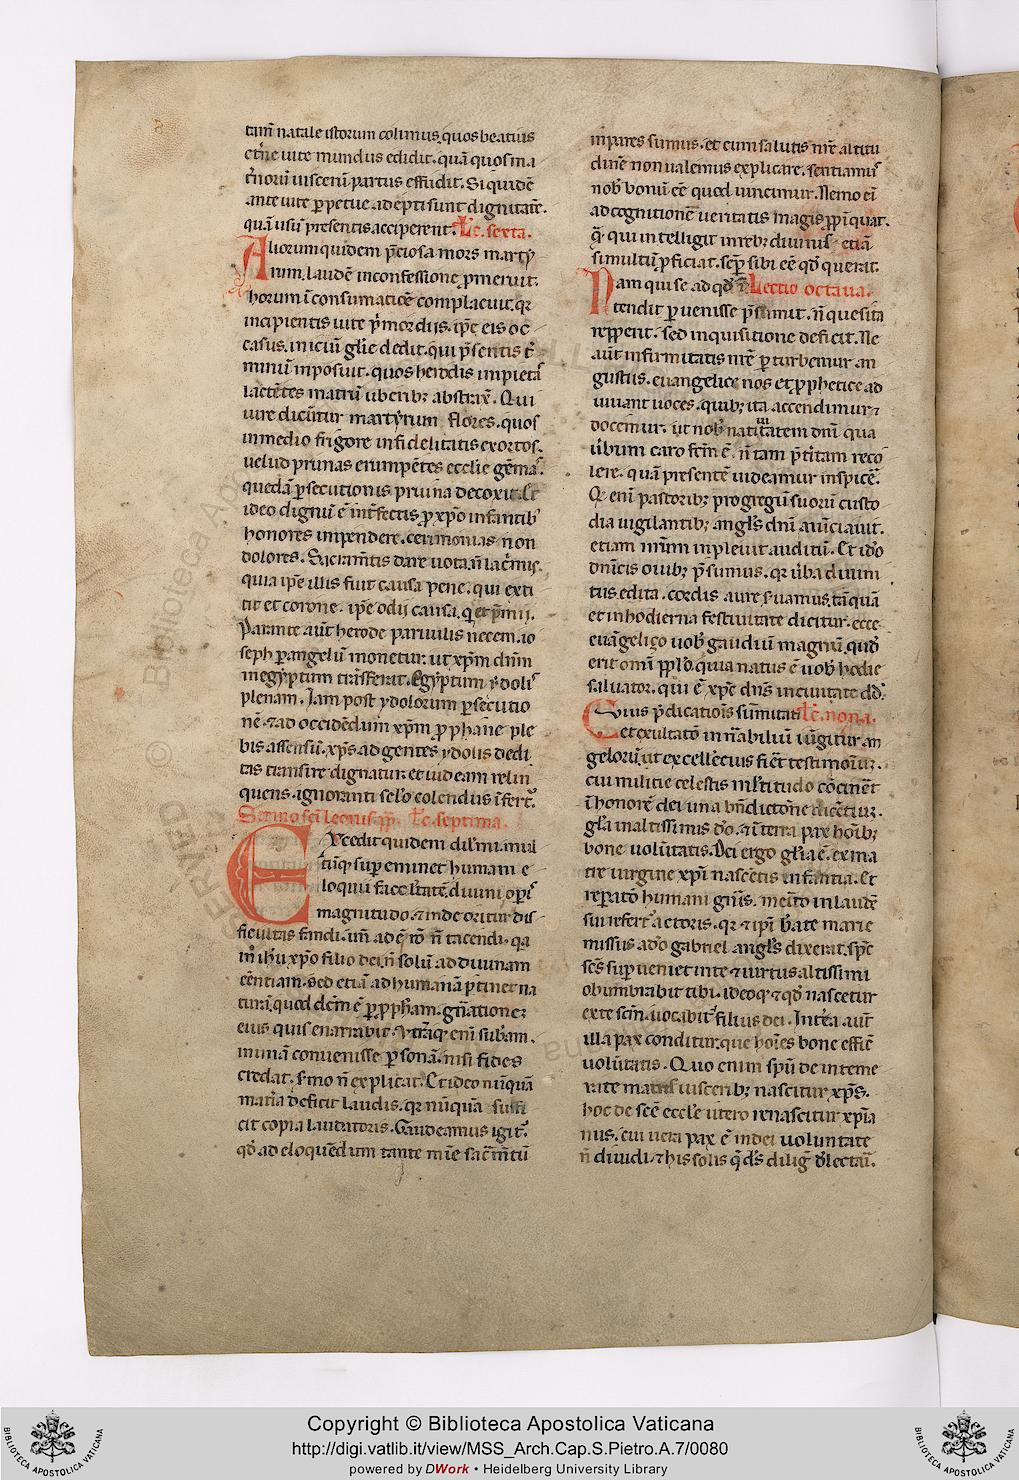 tm̄ natale istorum colimus quos beatius
et̾ne uite mundus edidit. quā quos ma
t̾norū uiscerū partus effudit. Siquidē
ante uite ꝑpetue adepti sunt dignitatē.
quā usū presentis acciperent. Lc̄. sexta.
Aliorum quidem p̄ciosa mors marty
rum. laudē inconfessione ꝓmeruit.
horum ī consumatiōe complacuit. qr
incipientis uite p̾mordijs. ip̄e eis oc
casus. iniciū gl̄ie dedit. qui p̄sentis t̾
minū inposuit. quos herodis impietas
lactētes matrū uberibꝫ abstrax̄. Qui
iure dicūtur martyrum flores. quos
in medio frigore infidelitatis exortos.
uelud prīmas erumpētes ecclie gēmas.
quedā ꝑsecutionis pruina decoxit. Et
ideo dignū ē int̾fectis ꝓ xp̄o infantibꝫ
honores inpendere. cerimonias non
dolores. Sacram̄tis dare uota. n̄ lac̾mis.
quia ip̄e illis fuit causa pene. qui exti
tit et corone. ip̄e odij causa. qi et p̄mij.
Parante aūt herode paruulis necem. io
seph ꝑ angelū monetur. ut xp̄m dn̄m
in egyptum trāsferat. Egyptum ydolis
plenam. Iam post ydolorum ꝑsecutio
nē. ⁊ ad occidēdum xp̄m ꝓphane ple
bis assensū. xp̄s ad gentes ydolis dedi
tas transire dignatur. et iudeam relin
quens. ignoranti sel̾o colendus īfert̾.
Sermo sc̄i leonis. pp̄. Lc̄. septima.
Excedit quidem dil̄mi. mul
tūqꝫ suꝑeminet humani e
loquii facultatē. diuini oꝑis
magnitudo. ⁊ inde oritur dif
ficultas fandi. un̄ adē rō n̄ tacendi. qa
in ih̄u xp̄o filio dei. n̄ solū ad diuinam
eēntiam. sed etiā ad humanā ꝑtinet na
turā. quod dēm ē ꝑ ꝓph̄am. gn̄ationeꝫ
eius quis enarrabit. Vt̾aqꝫ enī subām.
in unā conuenisse ꝑsonā. nisi fides
credat. s̾mo n̄ explicat. Et ideo nūquā
mat̾ia deficit laudis. qr nūquā suffi
cit copia laudatoris. Gaudeamus igit̾.
qd̾ ad eloquēdum tante mīe sac̾m̄tū
inpares sumus. et cum salutis nr̄e altitu
dinē non ualemus explicare. sentiamus
nob̾ bonū eē quod uincimur. Nemo ei
ad cognitionē ueritatis magis ꝓpīquat.
q̄. qui intelligit in rebꝫ diuinis etiā
si multū ꝓficiat. semꝑ sibi eē qd̾ querat.
Nam qui se ad qd̾ Lectio octaua.
tendit ꝑuenisse p̄sumit. n̄ quesita
reꝑperit. sed inquisitione deficit. Ne
aūt infirmitatis nr̄e ꝑturbemur. an
gustiis. euangelice nos et ꝓphetice ad
iuuant uoces. quibꝫ ita accendimur ⁊
docemur. ut nob̾ natiuitatem dn̄i qua
u̾bum caro fcm̄ ē. n̄ tam p̄t̾itam reco
lere. quā presentē uideamur inspicē.
Qd̾ enī pastoribꝫ pro gregū suorū custo
dia uigilantibꝫ angl̾s dn̄i nūciauit.
etiam nr̄m inpleuit auditū. Et ido
dn̄icis ouibꝫ p̄sumus. qr u̾ba diuini
tus edita. cordis aure s̾uamus. tāquā
et in hodierna festiuitate dicitur. ecce
euāgelizo uob̾ gaudiū magnū. quod
erit omī ppl̾o. quia natus ē uob̾ hodie
saluator. qui ē xp̄c dn̄s in ciuitate dd̾.
Cuius p̄dicatiōis sūmitati Lc̄. nona.
et exultatō innr̄abiliū iūgitur an
gelorū. ut excellēcius fiēt testimoīu.
cui militie celestis m̄l̾titudo cōcinēt
ī honorē dei una bn̄dictōne dicētiū.
gl̄a in altissimis d̾o. ⁊ ī terra pax hoībꝫ
bone uolūtatis. Dei ergo gl̄ia ē. ex ma
tre uirgine xp̄i nascētis infantia. Et
reꝑatō humani gn̄is. merito in laudē
sui refert̾ actoris. qr ⁊ ip̄i b̄ate marie
missus a d̾o gabriel angl̾s dixerat. sp̄c
sc̄s suꝑueniet in te ⁊ uirtus altissimi
obumbrabit tibi. ideoqꝫ ⁊ qd̾ nascetur
ex te scm̄. uocabit̾ filius dei. In ter̾a aūt
illa pax conditur. que hoīes bone effic̄
uolūtatis. Quo enim sp̄u de inteme
rate matris uisceribꝫ nascitur xp̄s.
hoc de sc̄e ecclīe utero renascitur xp̄ia
nus. cui uera pax ē in dei uoluntate
n̄ diuidi. ⁊ his solis q̄ ds̄ dilig̾ d̾lectari.
Copyright © Biblioteca Apostolica Vaticana
http://digi.vatlib.it/view/MSS_Arch.Cap.S.Pietro.A.7/0080
powered by DWork • Heidelberg University Library
BIBLIOTECA APOSTOLICA VATICANA
BIBLIOTECA APOSTOLICA VATICANA